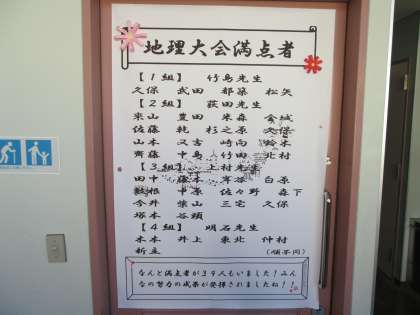 地理大会満点者
【1組】 竹島先生
久保 武田 都築 松矢
【2組】 荻田先生
東山 豊田 米森 金城
佐藤 乾 杉之原 久保
山本 又吉 崎向 鈴木
齊藤 中島 竹田 北村
【3組】 上村先生
田中 藤本 岸谷 白原
中原 佐々野 森下
今井 柴山 三宅 久保
塚本 谷頭
【4組】 明石先生
木本 井上 東北 仲村
新立 (順不同)
なんと満点者が39人もいました!みん
なの努力の成果が発揮されましたね!!